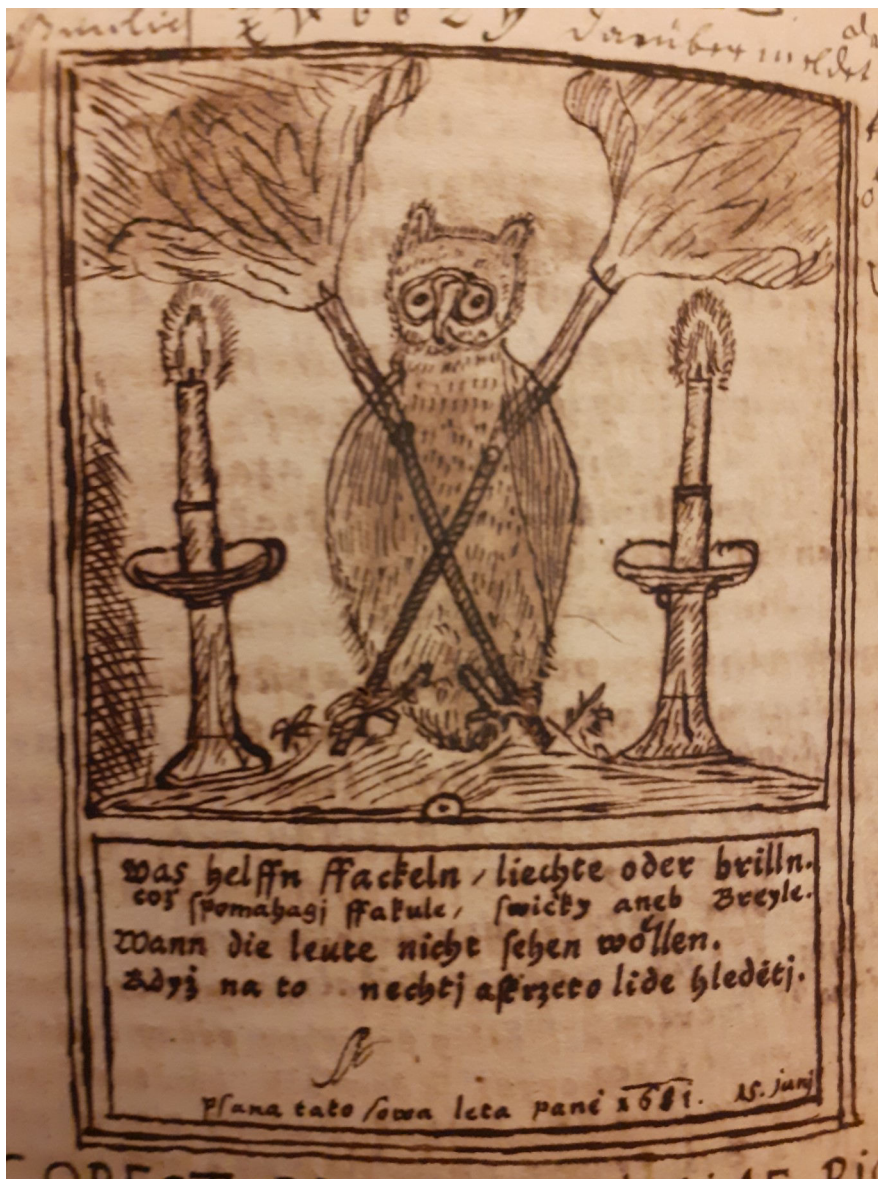 darüber meldet
Was helffn ffackeln / liechte oder brilln.
coż spomahagj ffakule, swičky aneb Breyle.
Wann die leute nicht sehen wöllen.
Kdyż na to nechtj lide hledětj.
Psana tato sowa leta pane 1681. 15. junj